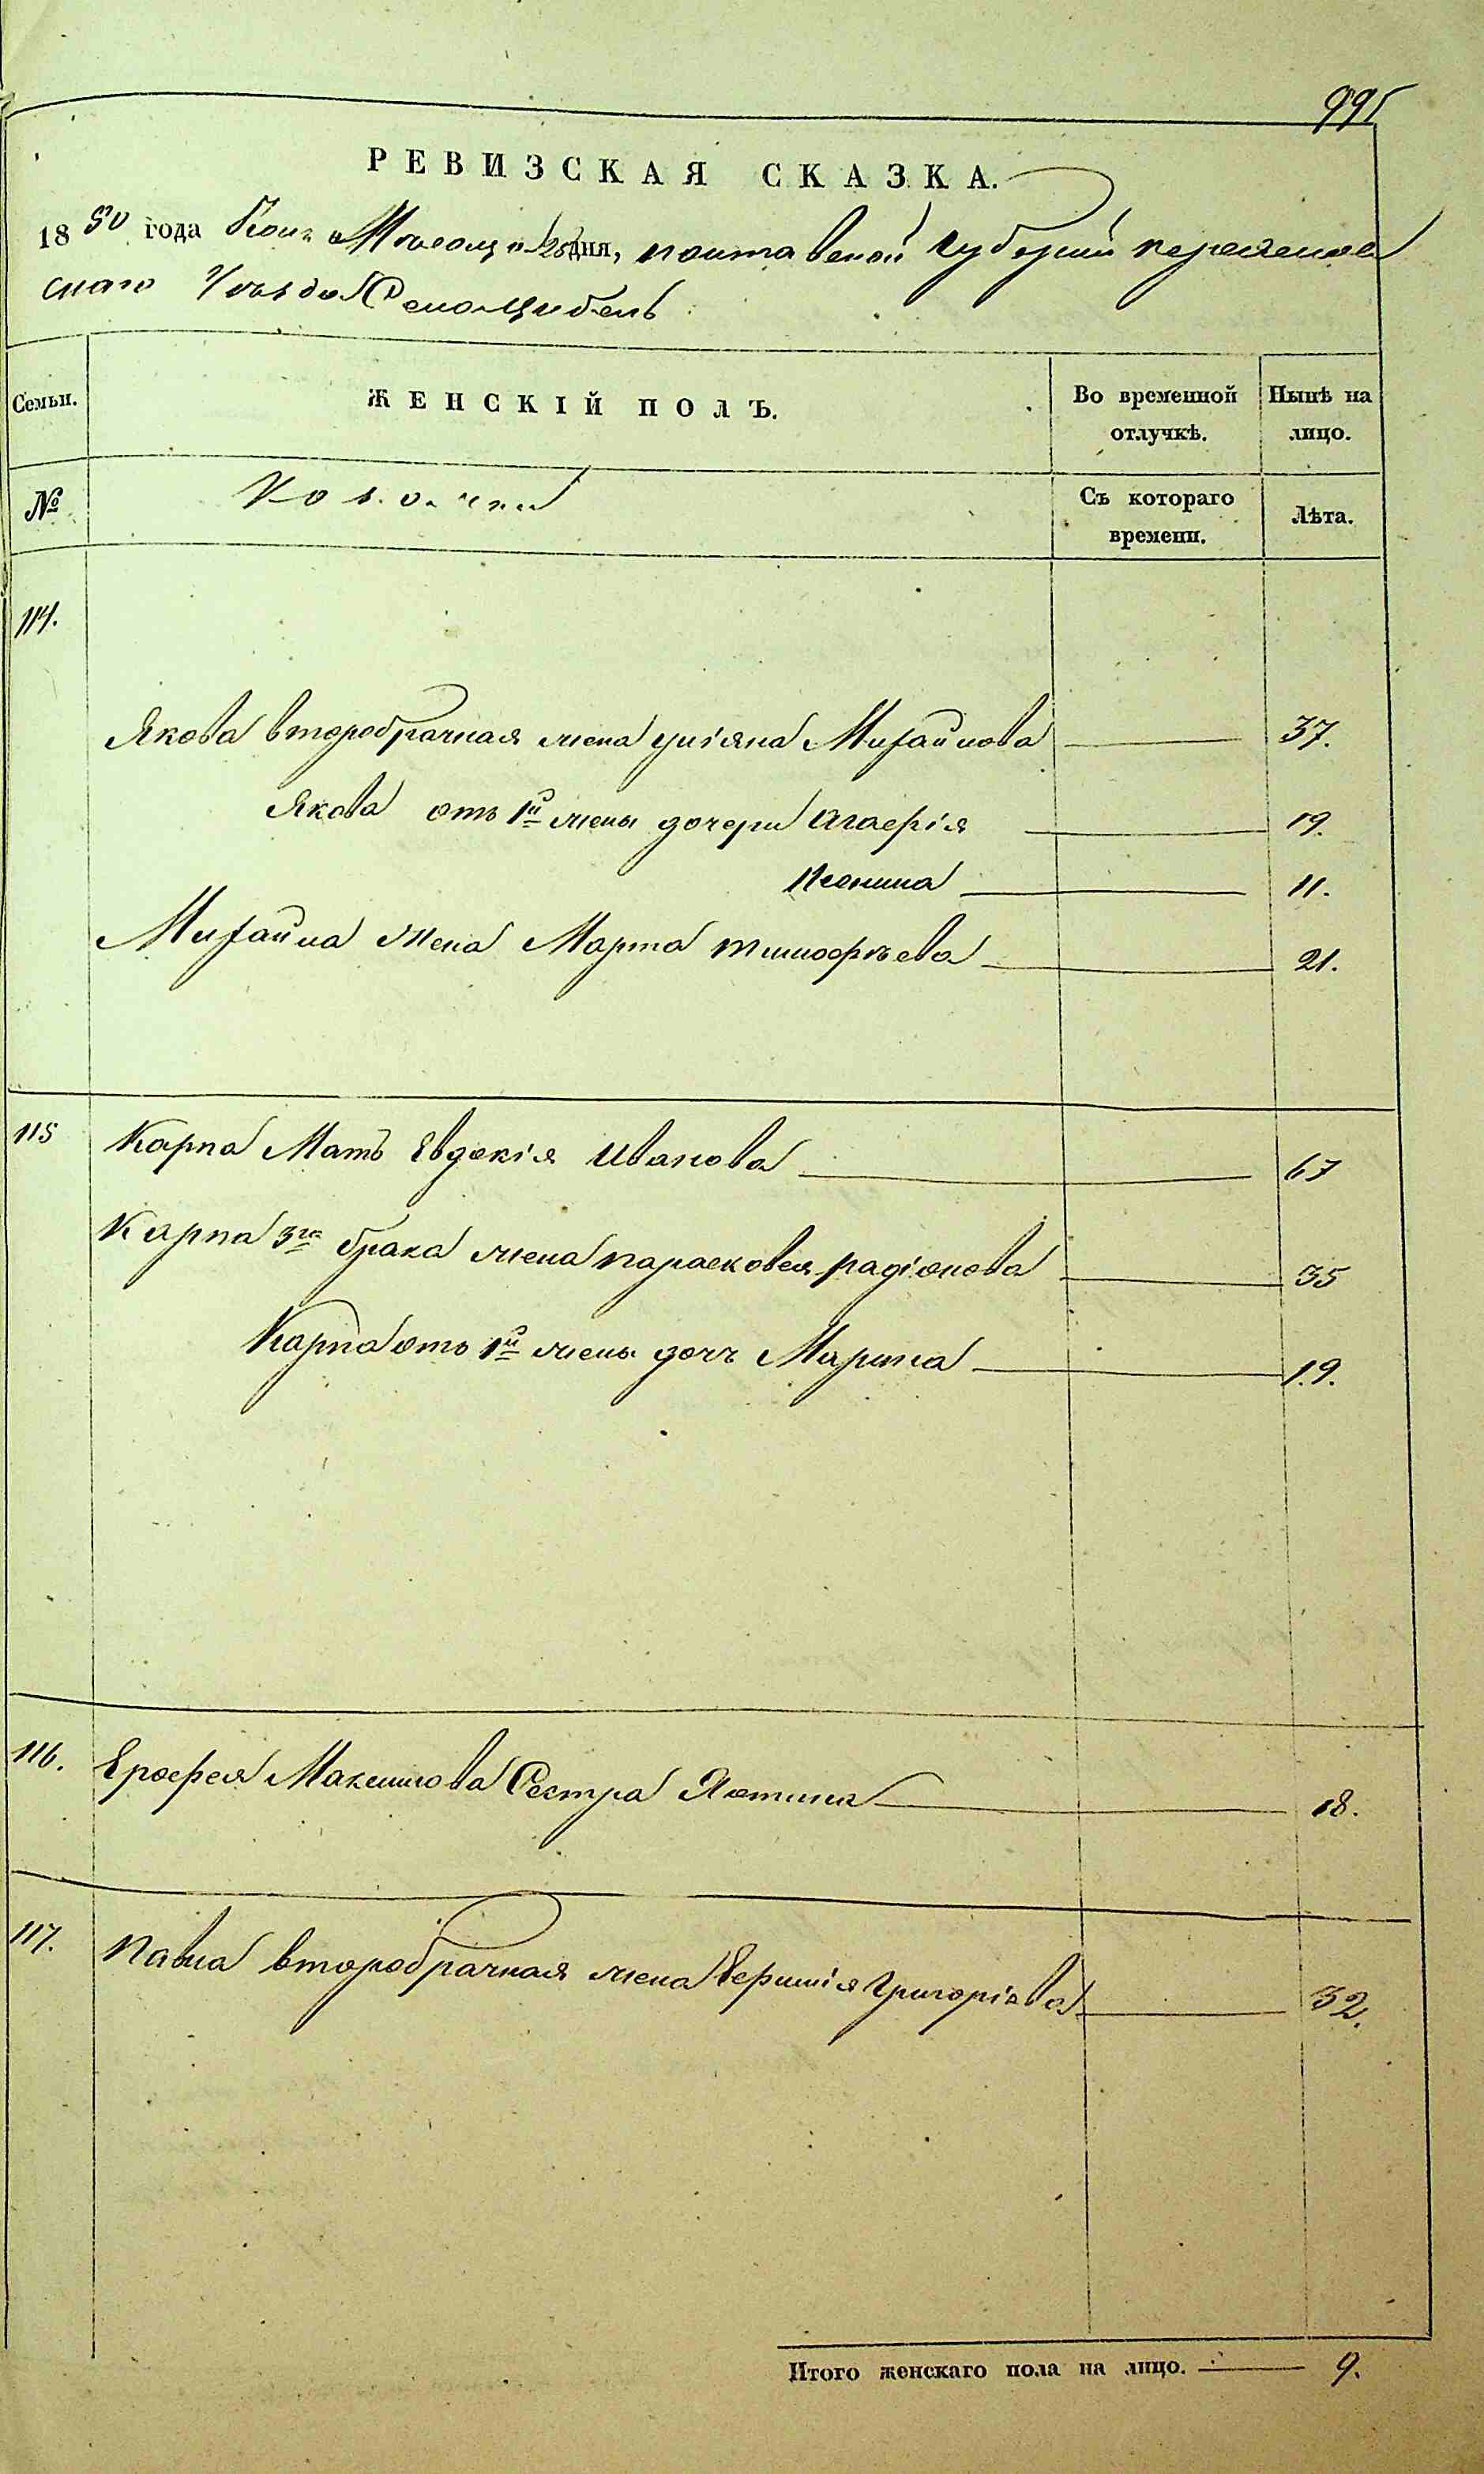 995
РЕВИЗСКАЯ СКАЗКА.
1850 года Мѣсяца 25 дня, полтавской Губерніи переяслов
скаго Уѣзда Села Цибель
Семьи. ЖЕНСКІЙ ПОЛЪ. Во временной отлучкѣ. Нынѣ на лицо.
№ Козачки Съ котораго времени. Лѣта.
114.
Якова второбрачная жена уліяна Михайлова 37.
Якова отъ 1й жены дочери Агафія 19.
Ксенiя 11.
Михайла жена Марта тимофѣева 21.
115 Карпа Мать Евдокія Иванова 67
Карпа 3го брака жена парасковея радіонова 35
Карпа отъ 1й жены дочь Марина 19.
116. Ерофея Максимова Сестра 18.
117. павла второбрачная жена Евфимія Григоріева 32.
Итого женскаго пола на лицо. 9.